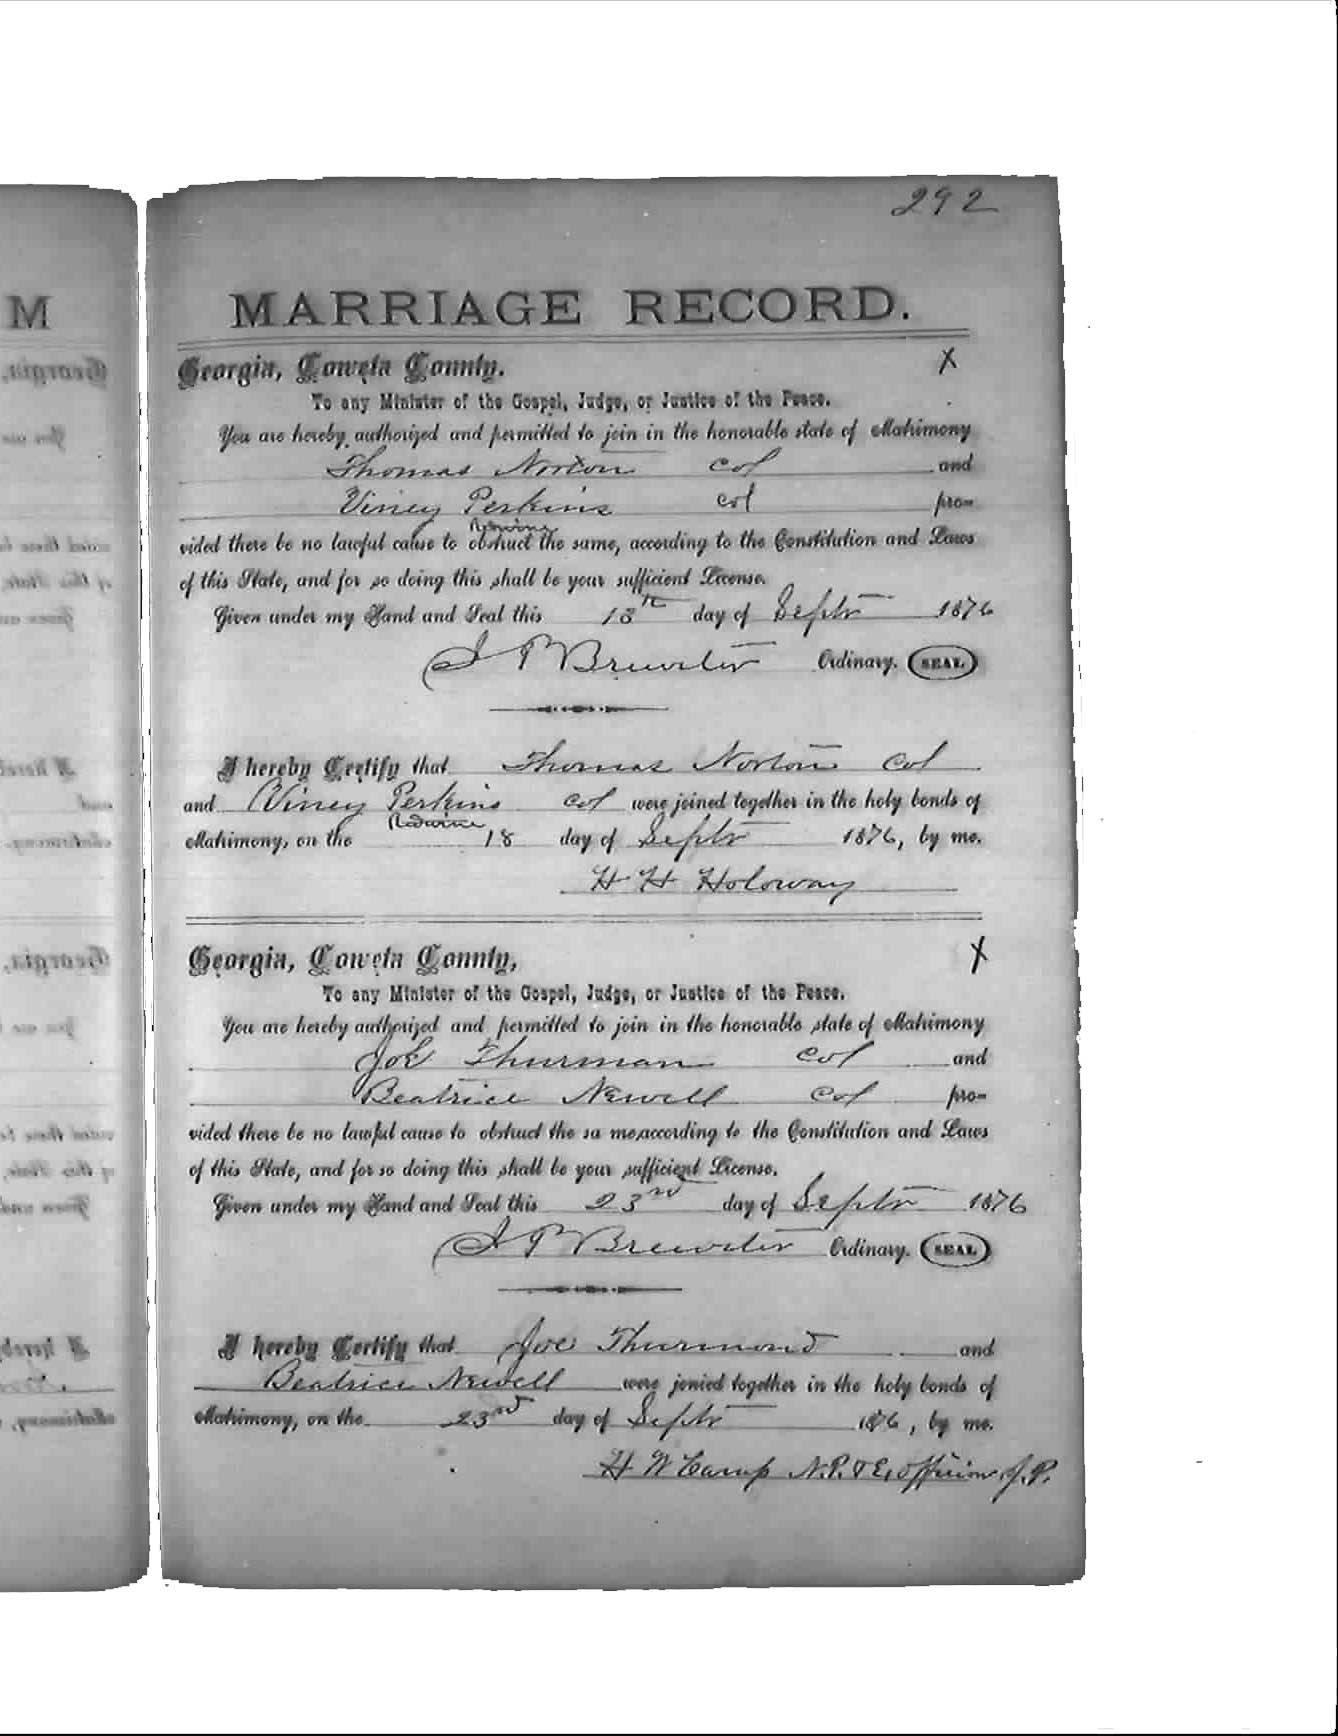 292
M
MARRIAGE RECORD.
Georgia, Coweta County. X
To any Minister of the Gospel, Judge, or Justice of the Peace.
You are hereby authorized and permitted to join in the honorable state of Matrimony
Thomas Norton col and
Viney Perkins col pro-
Redwine
vided there be no lawful cause to obstruct the same, according to the Constitution and Laws
of this State, and for so doing this shall be your sufficient License.
Given under my Hand and Seal this 18th day of Septr 1876
J P Brewster Ordinary. SEAL
I hereby Certify that Thomas Norton col
and Viney Perkins col were joined together in the holy bonds of
Redwine
Matrimony, on the 18 day of Septr 1876, by me.
H H Holoway
Georgia, Coweta County, X
To any Minister of the Gospel, Judge, or Justice of the Peace.
You are hereby authorized and permitted to join in the honorable state of Matrimony
Joe Thurman col and
Beatrice Newell col pro-
vided there be no lawful cause to obstruct the sa me,according to the Constitution and Laws
of this State, and for so doing this shall be your sufficient License.
Given under my Hand and Seal this 23rd day of Septr 1876
J P Brewster Ordinary. SEAL
I hereby Certify that Joe Thurmond and
Beatrice Newell were jonied together in the holy bonds of
Matrimony, on the 23rd day of Septr 1876, by me.
H W Camp N.P. & Ex officio J.P.